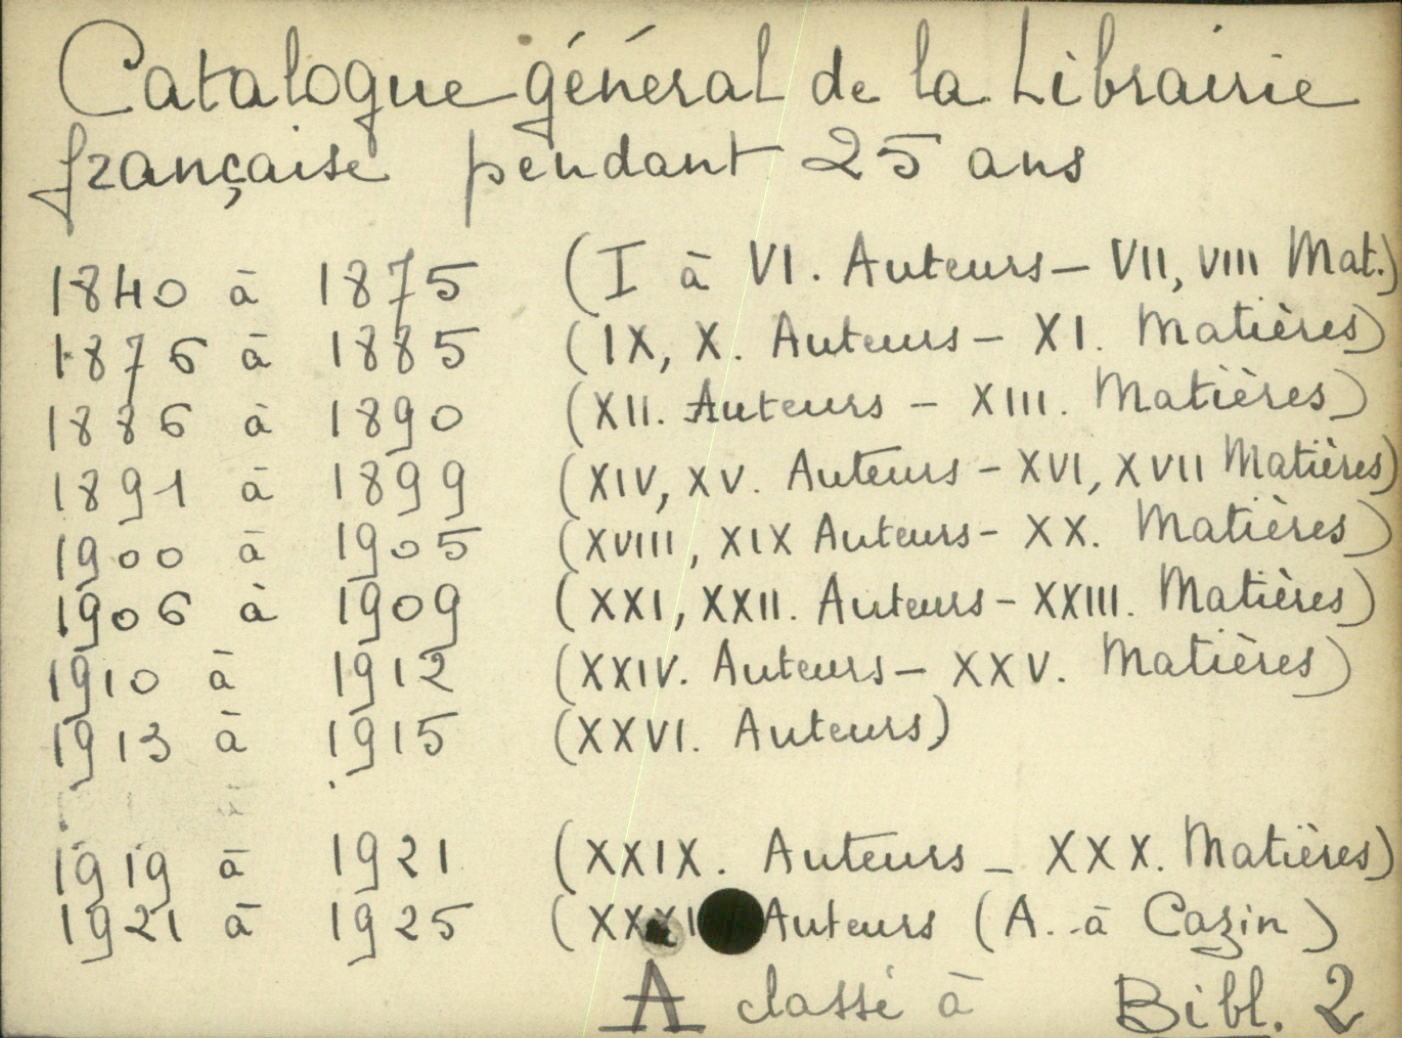 Catalogue général de la Librairie
française pendant 25 ans
1840 à 1875 (I à VI. Auteurs - VII, VIII Mat.)
1876 à 1885 (IX, X. Auteurs - XI. Matières)
1886 à 1890 (XII. Auteurs - XIII. Matières)
1891 à 1899 (XIV, XV. Auteurs - XVI, XVII Matières)
1900 à 1905 (XVIII, XIX Auteurs - XX. Matières)
1906 à 1909 (XXI, XXII. Auteurs - XXIII. Matières)
1910 à 1912 (XXIV. Auteurs - XXV. Matières)
1913 à 1915 (XXVI. Auteurs)
1919 à 1921 (XXIX. Auteurs - XXX. Matières)
1921 à 1925 ( Auteurs (A. à Cazin)
A classé à Bibl. 2